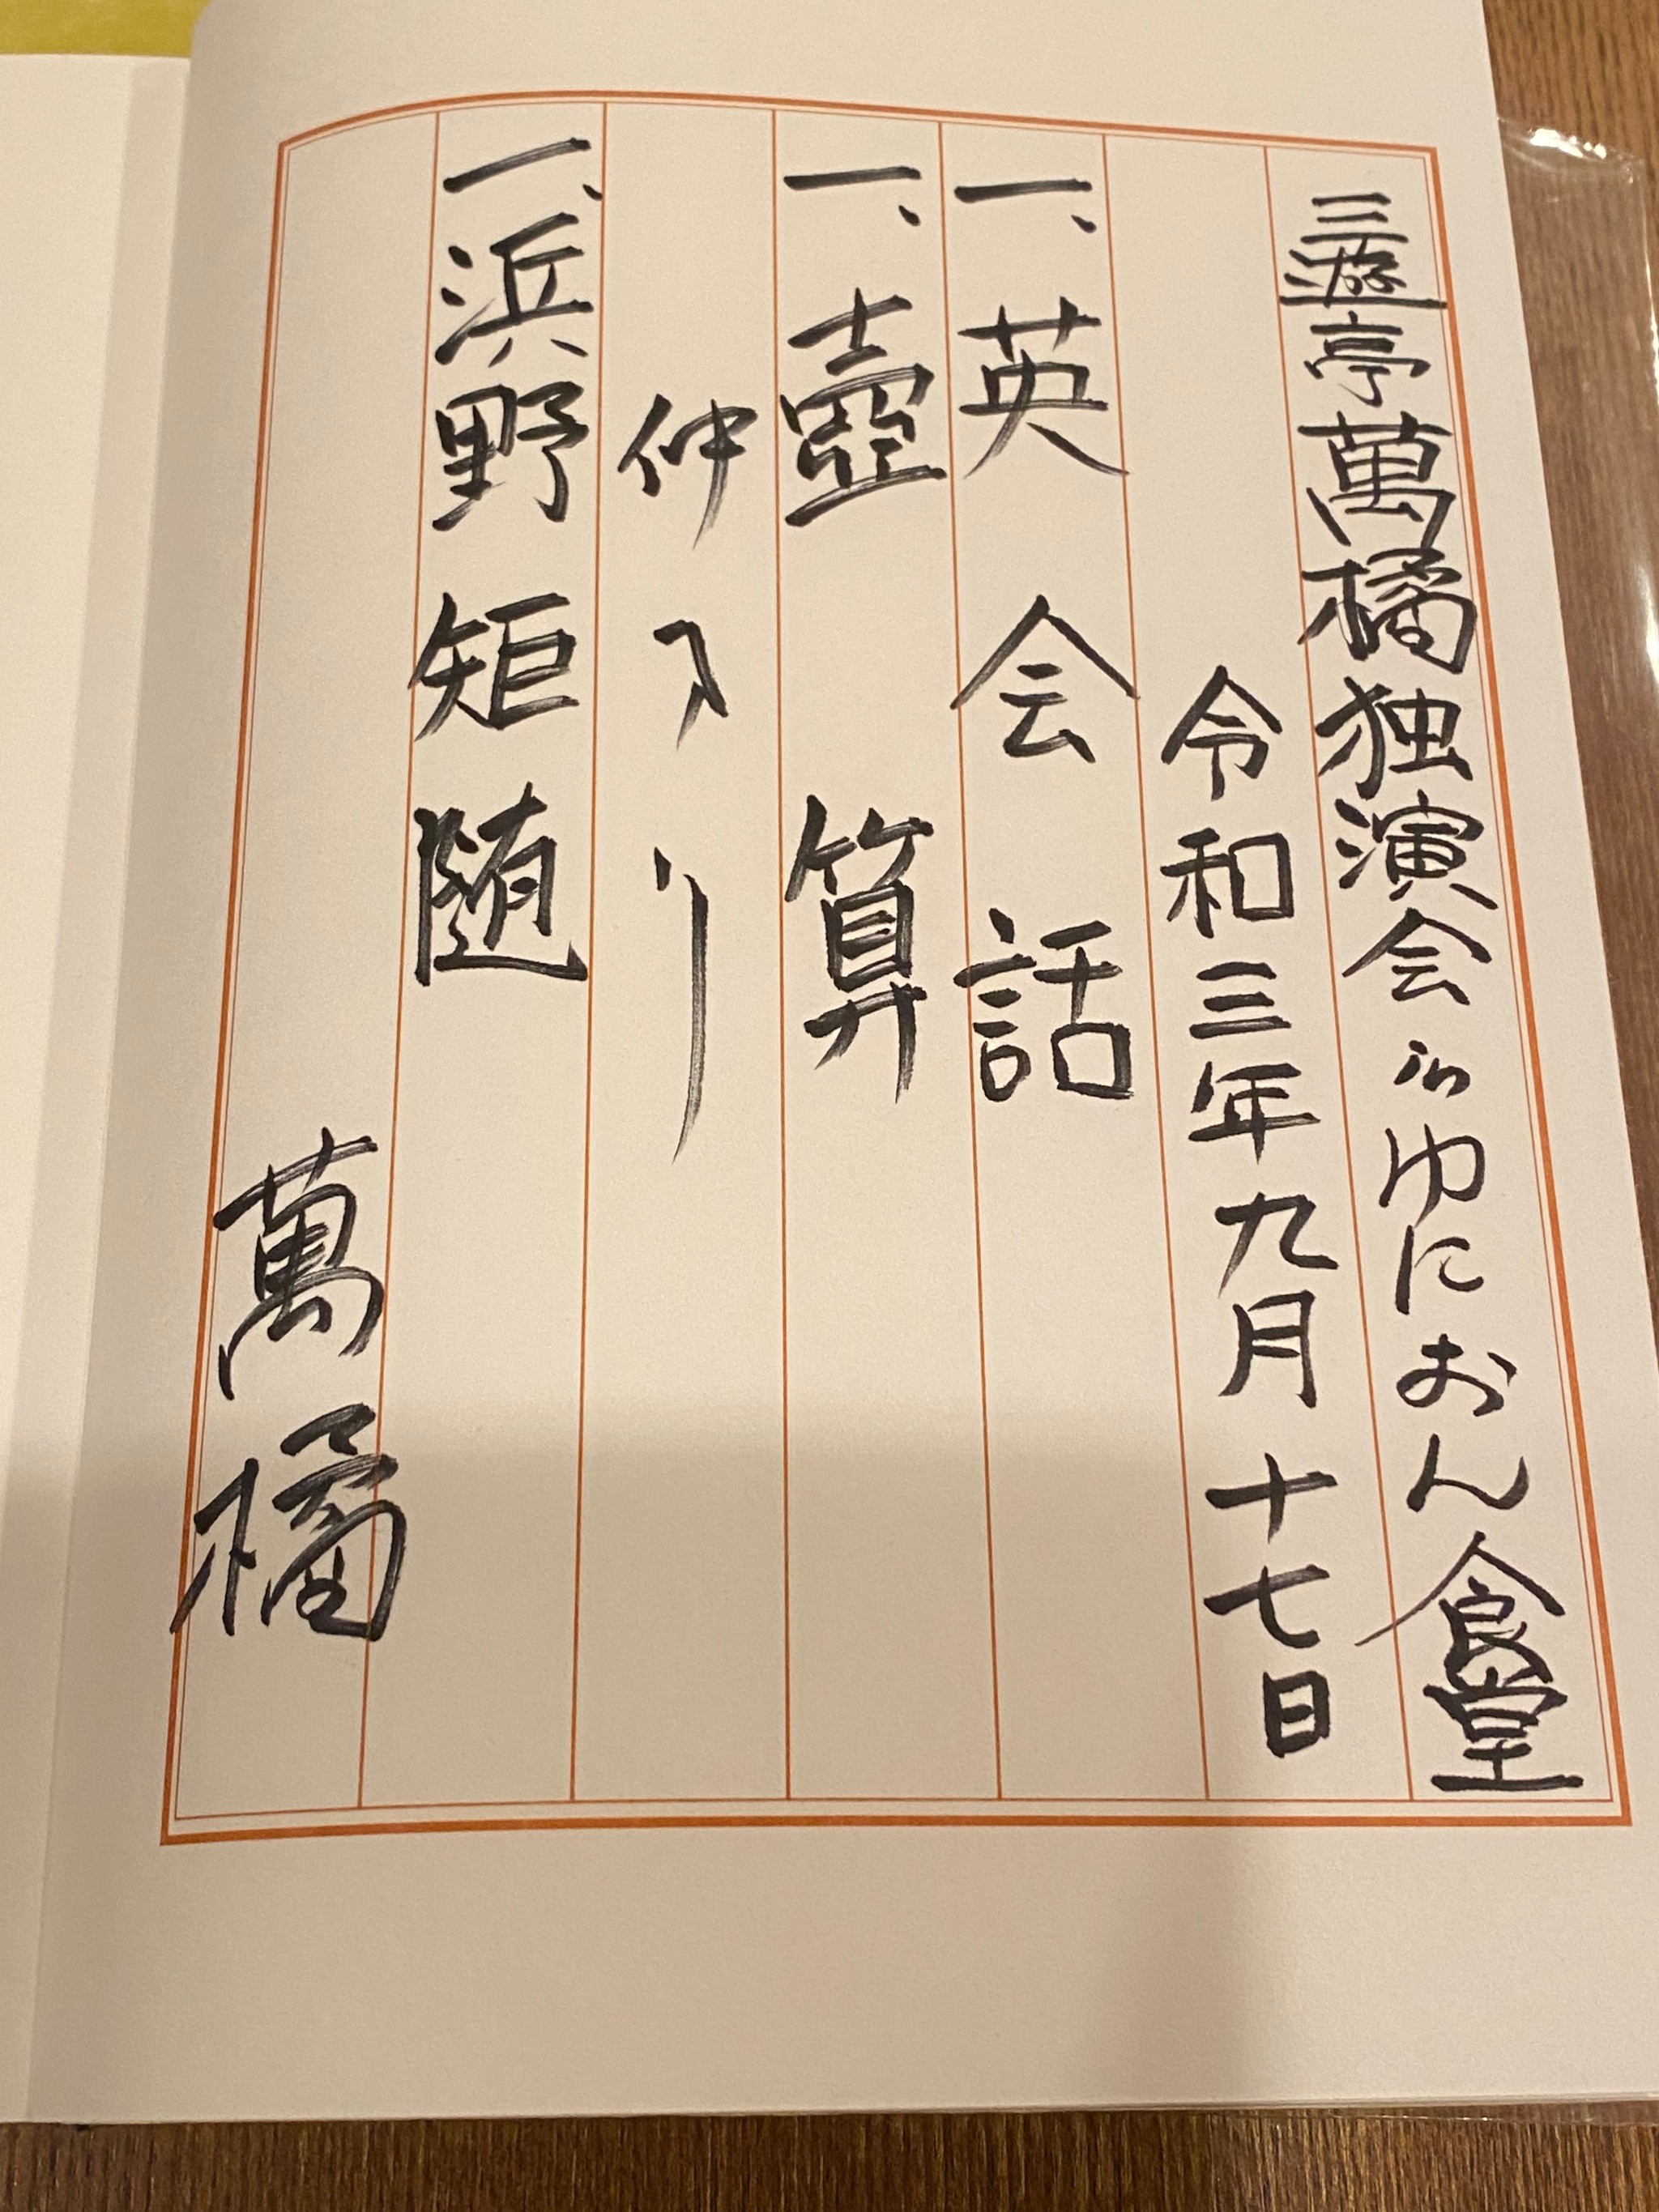 三遊亭萬橘独演会 in ゆにおん食堂
令和三年九月十七日
一、英会話
一、壺算
仲入り
一、浜野矩随
萬橘